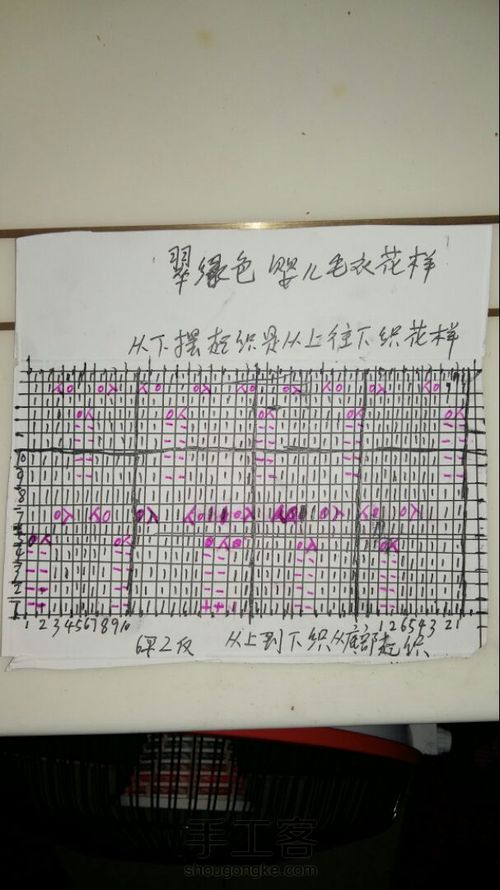 翠绿色 婴儿毛衣花样
从下摆起织是从上往下织花样
10
9
8
7
5
4
3
2
1
1 2 3 4 5 6 7 8 9 10
1 2 6 5 4 3 2 1
6平2反 从上到下织从肩部起织
手工客
shougongke.com